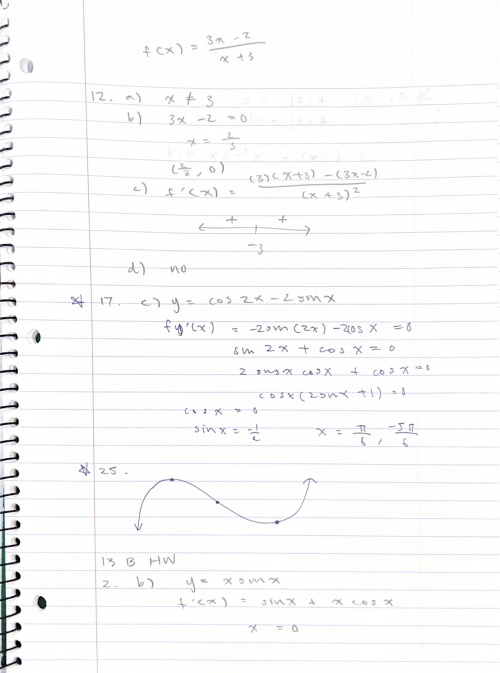 f(x) = (3x - 2)/(x + 3)
12. a) x ≠ 3
b) 3x - 2 = 0
x = 2/3
(2/3, 0)
c) f'(x) = ((3)(x+3) - (3x-2))/(x+3)²
+ +
-3
d) no
17. c) y = cos 2x - 2 sin x
fy'(x) = -2 sin(2x) - 2cos x = 0
sin 2x + cos x = 0
2 sin x cos x + cos x = 0
cos x (2 sin x + 1) = 0
cos x = 0
sin x = -1/2 x = π/6, -5π/6
25.
13 B HW
2. b) y = x sin x
f'(x) = sin x + x cos x
x = 0